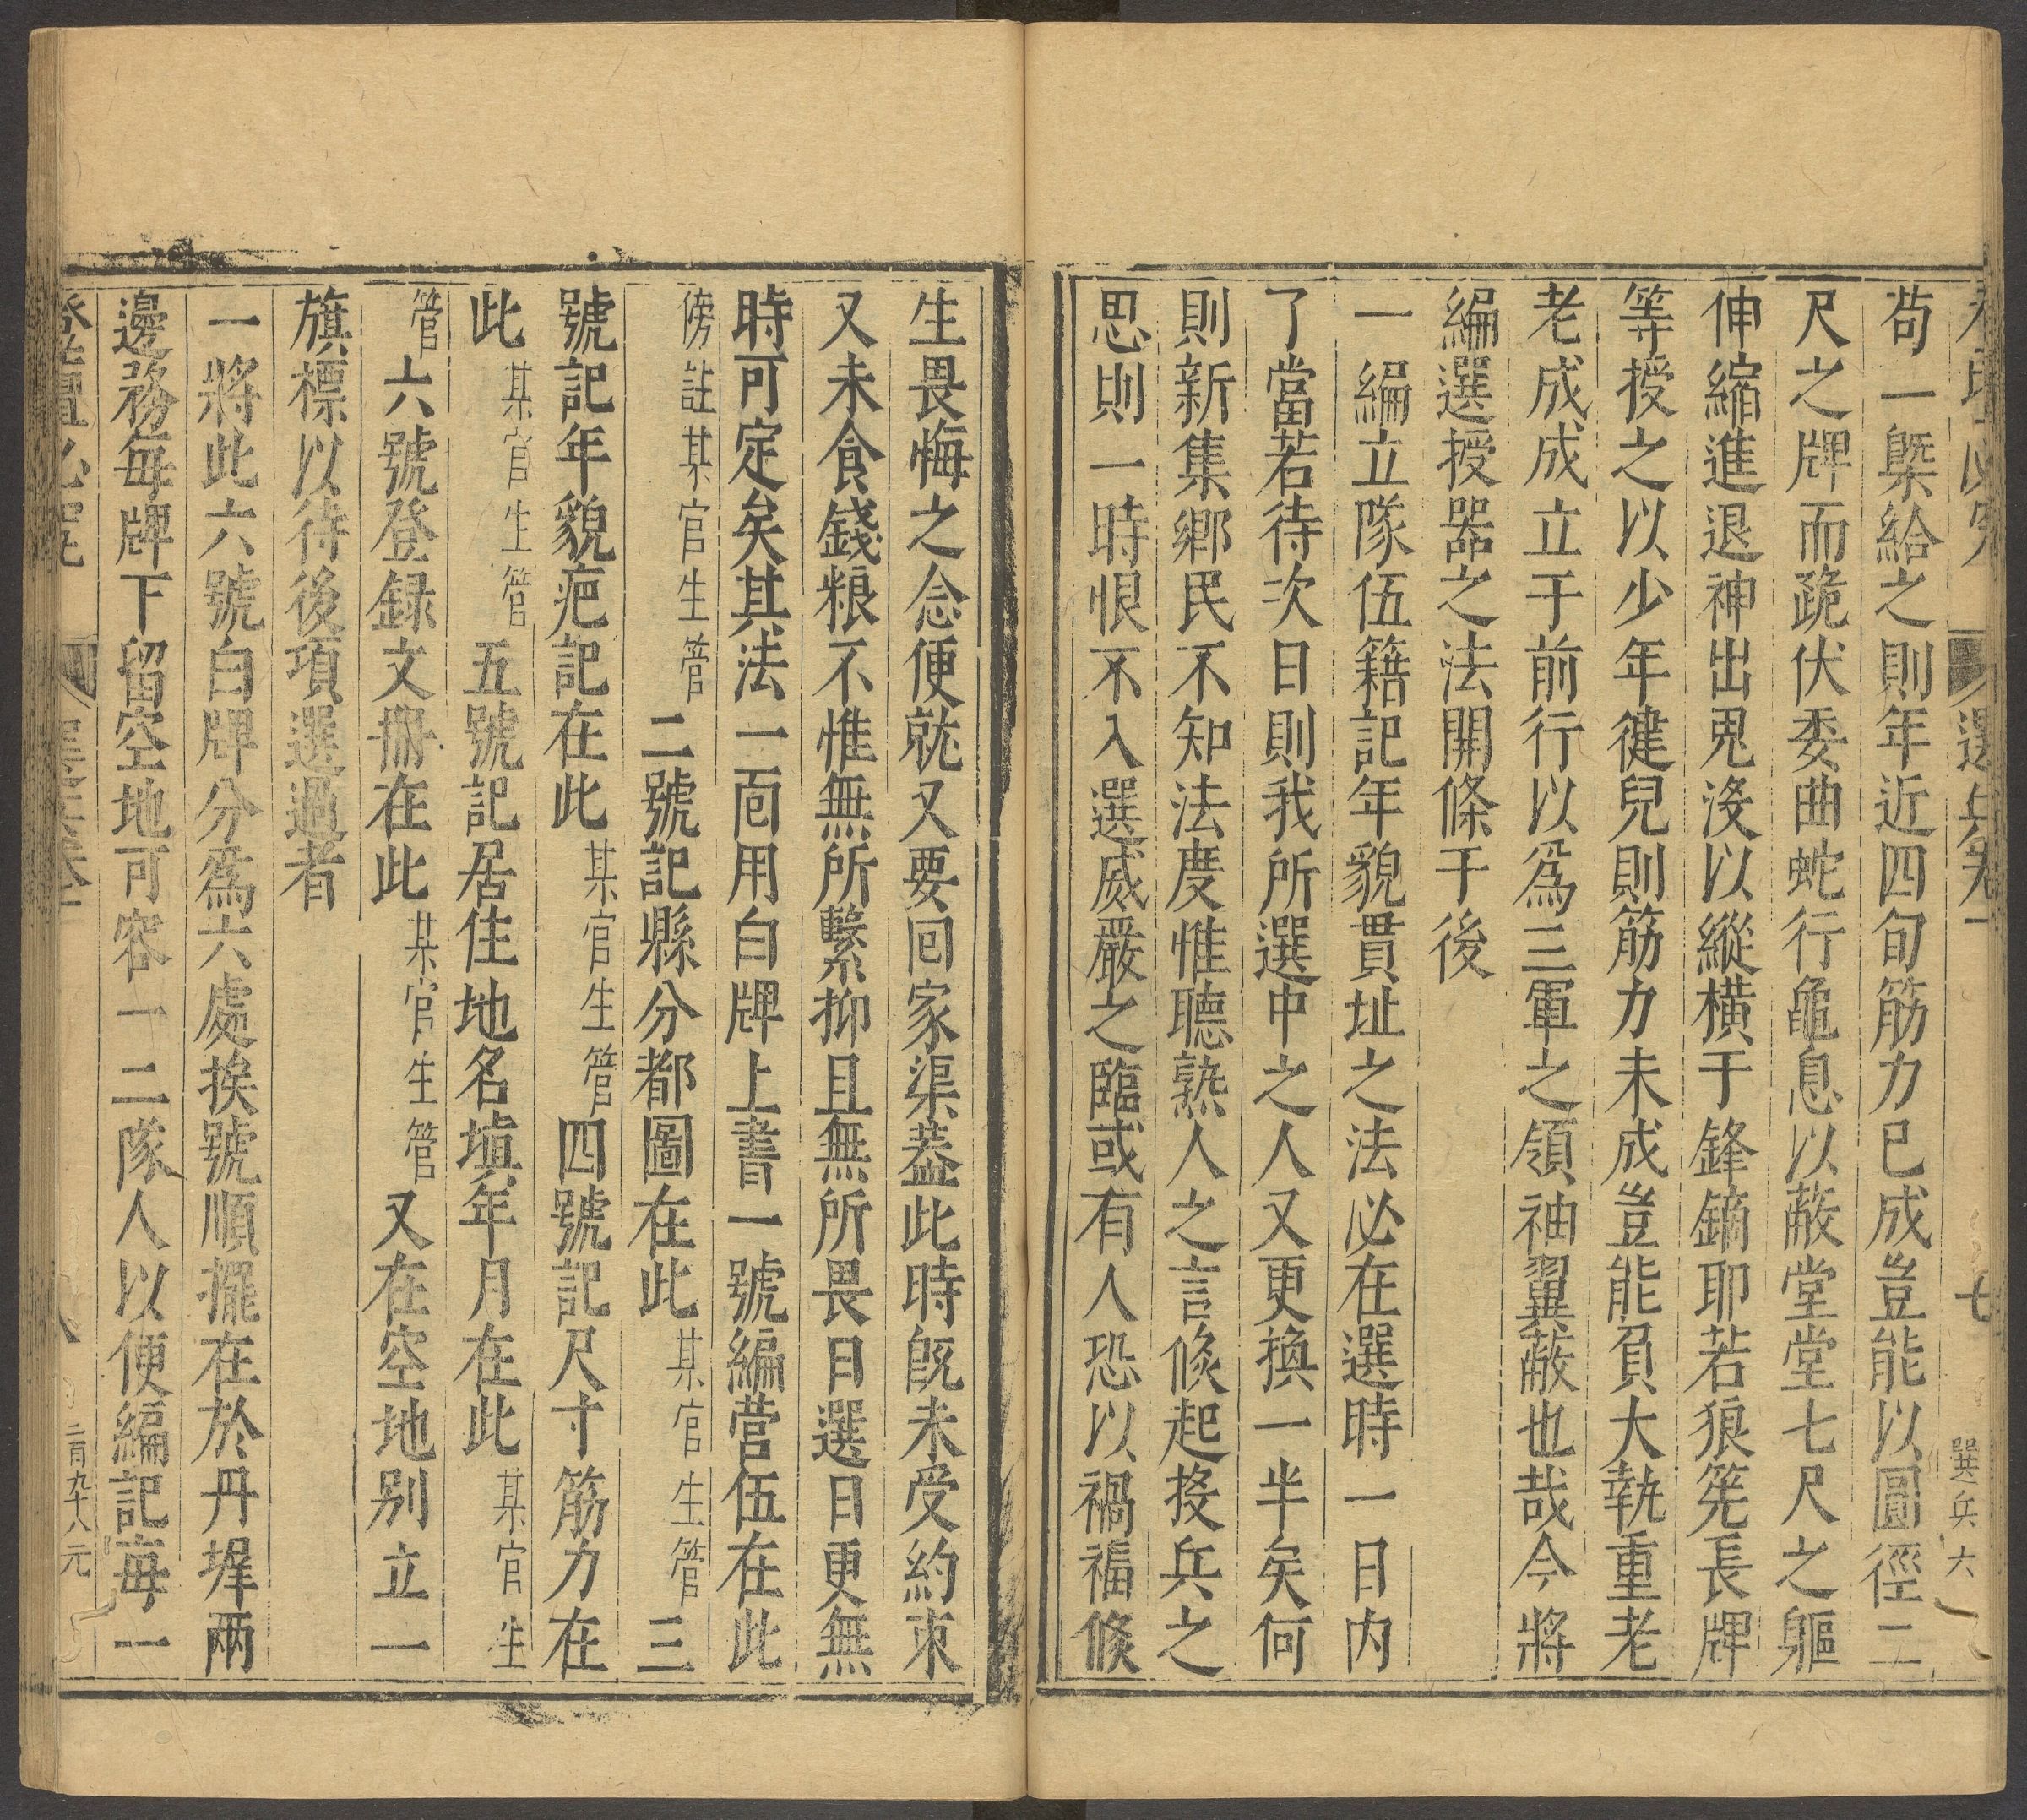 選兵卷一
七
選兵六
苟一槩給之則年近四旬筋力已成豈能以圓徑二
尺之牌而跪伏委曲蛇行龜息以蔽堂堂七尺之軀
伸縮進退神出鬼沒以縱橫于鋒鏑耶若狼筅長牌
等授之以少年徤兒則筋力未成豈能負大執重老
老成成立于前行以爲三軍之領袖翼蔽也哉今將
編選授器之法開條于後
一編立隊伍籍記年貌貫址之法必在選時一日内
了當若待次日則我所選中之人又更換一半矣何
則新集鄉民不知法度惟聽熟人之言倐起投兵之
思則一時恨不入選威嚴之臨或有人恐以禍福倐
生畏悔之念便就又要囘家渠葢此時旣未受約束
又未食錢粮不惟無所繫抑且無所畏日選日更無
時可定矣其法一面用白牌上書一號編營伍在此
傍註某官生管二號記縣分都圖在此某官生管三
號記年貌疤記在此某官生管四號記尺寸筋力在
此某官生管五號記居住地名塡年月在此某官生
管六號登録文册在此某官生管又在空地别立一
旗標以待後項選過者
一將此六號白牌分爲六處挨號順擺在於丹墀兩
邊務每牌下留空地可容一二隊人以便編記每一
登壇必究
八
二百九十八元